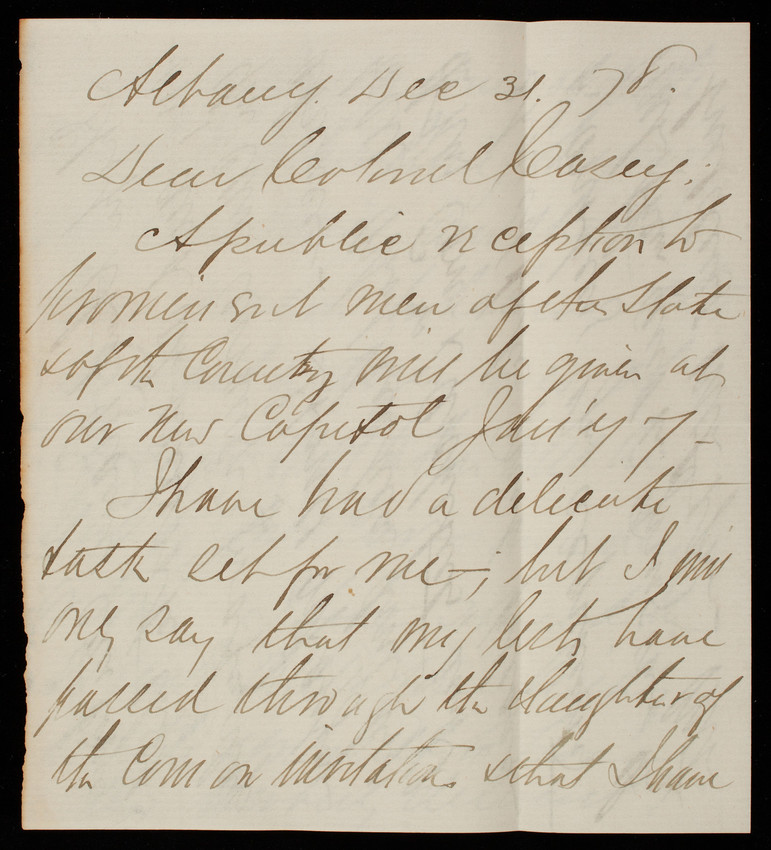 Albany. Dec 31. 78.
Dear Colonel Casey;
A public reception to
prominent men of the State
& of the Country will be given at
our New Capitol Jan'y 7_
I have had a delicate
task set for me—; but I will
only say that my lists have
passed through the slaughter of
the Com on invitations & that I have